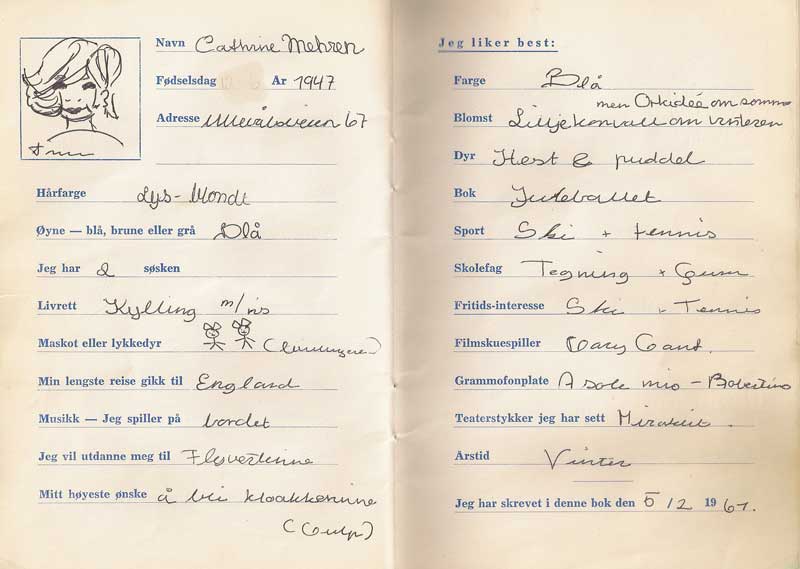 Navn Cathrine Mehren
Fødselsdag År 1947
Adresse Ullevålsveien 67
Hårfarge Lys-blondt
Øyne — blå, brune eller grå Blå
Jeg har 2 søsken
Livrett Kylling m/ris
Maskot eller lykkedyr
Min lengste reise gikk til England
Musikk — Jeg spiller på bordet
Jeg vil utdanne meg til Flyvertinne
Mitt høyeste ønske å bli
(Gulp)
Jeg liker best:
Farge Blå
men Orkideé om somme
Blomst Liljekonvall om vinteren
Dyr Hest & puddel
Bok Juleballet
Sport Ski + tennis
Skolefag Tegning + Gym
Fritids-interesse Ski + Tennis
Filmskuespiller Cary Grant.
Grammofonplate A sole mio - Robertino
Teaterstykker jeg har sett Mirakel.
Årstid Vinter
Jeg har skrevet i denne bok den 5/2 1961.